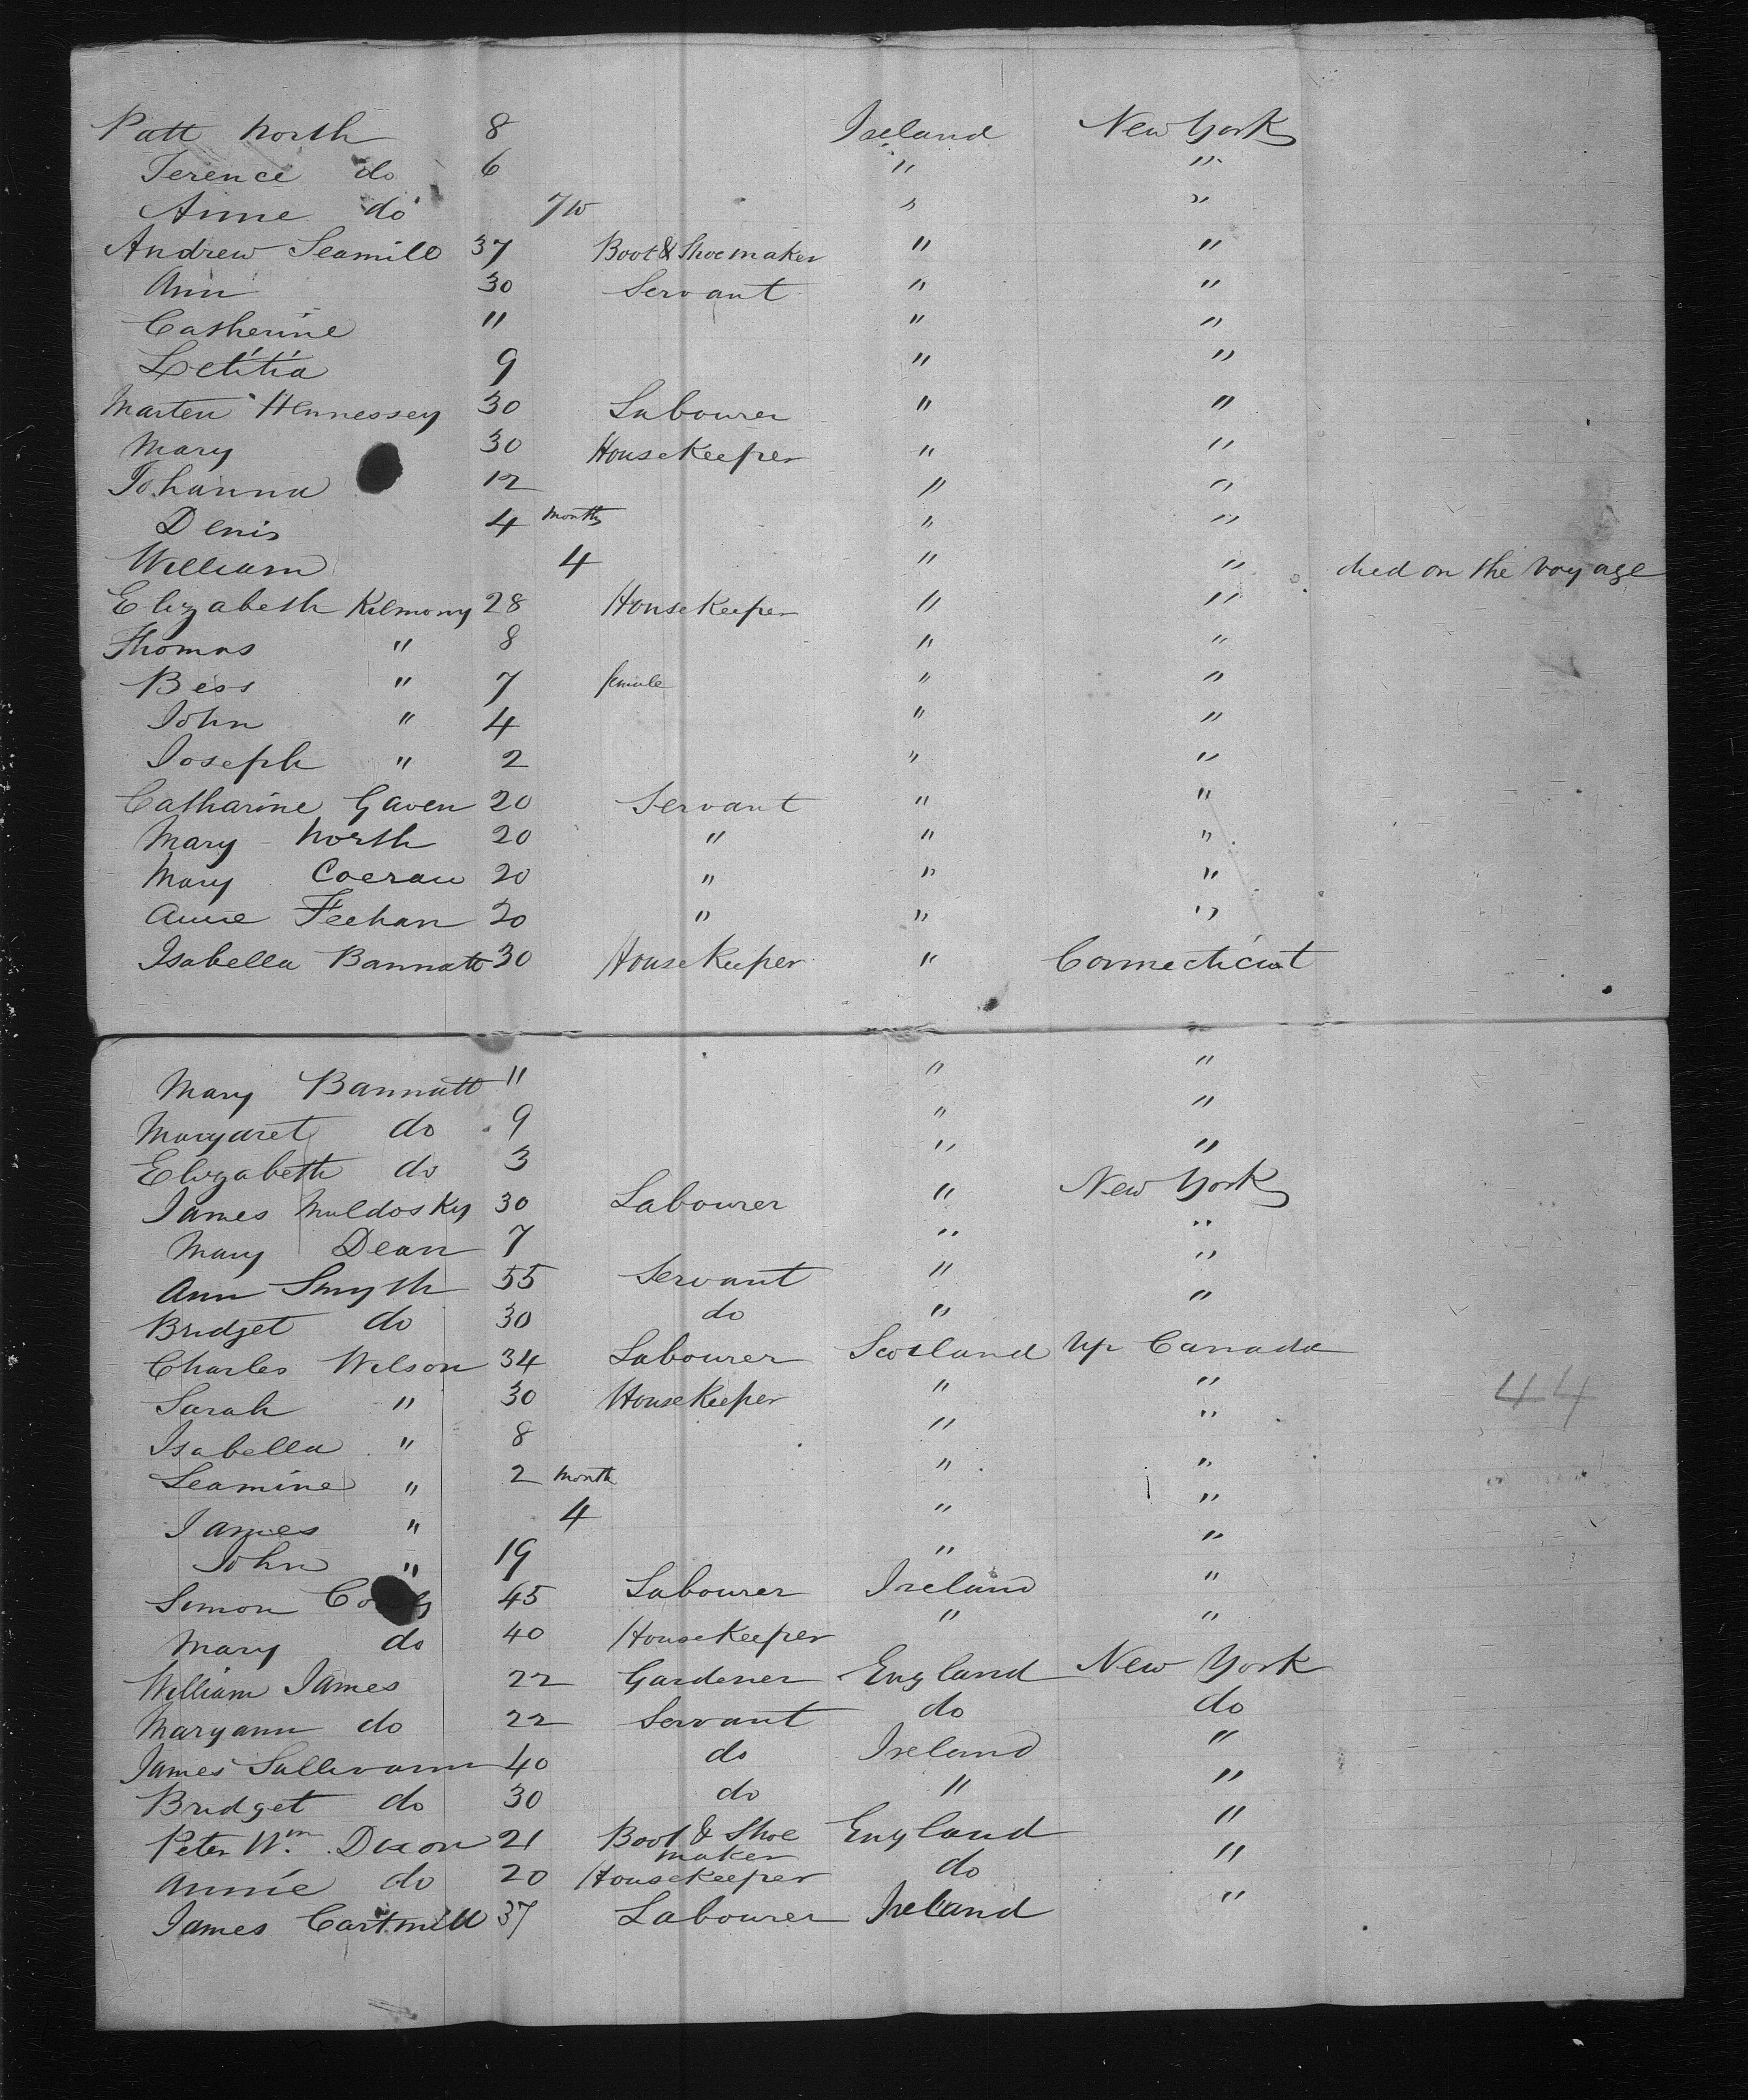 Patt North 8 Ireland New York
Terence do 6 " "
Anne do 7w " "
Andrew Seamill 37 Boot & Shoemaker " "
Ann 30 Servant " "
Catherine 11 " "
Letitia 9 " "
Marten Hennessey 30 Labourer " "
Mary 30 Housekeeper " "
Johanna 12 " "
Denis 4 months " "
William 4 " " died on the voyage
Elizabeth Kilmony 28 Housekeeper " "
Thomas " 8 " "
Bess " 7 female " "
John " 4 " "
Joseph " 2 " "
Catharine Gaven 20 Servant " "
Mary North 20 " " "
Mary Coeran 20 " " "
Annie Feehan 20 " " "
Isabella Bannatt 30 Housekeeper " Connecticut
Mary Bannatt 11 " "
Margaret do 9 " "
Elizabeth do 3 " "
James Muldosky 30 Labourer " New York
Mary Dean 7 " "
Ann Smyth 55 Servant " "
Bridget do 30 do " "
Charles Wilson 34 Labourer Scotland Up Canada
Sarah " 30 Housekeeper " "
44
Isabella " 8 " "
Leamine " 2 month " "
James " 4 " "
John " 19 " "
Simon 45 Labourer Ireland "
Mary do 40 Housekeeper " "
William James 22 Gardener England New York
Maryann do 22 Servant do do
James Sullivann 40 do Ireland "
Bridget do 30 do " "
Peter Wm. Dixon 21 Boot & Shoe maker England "
Annie do 20 Housekeeper do "
James Cartmill 37 Labourer Ireland "